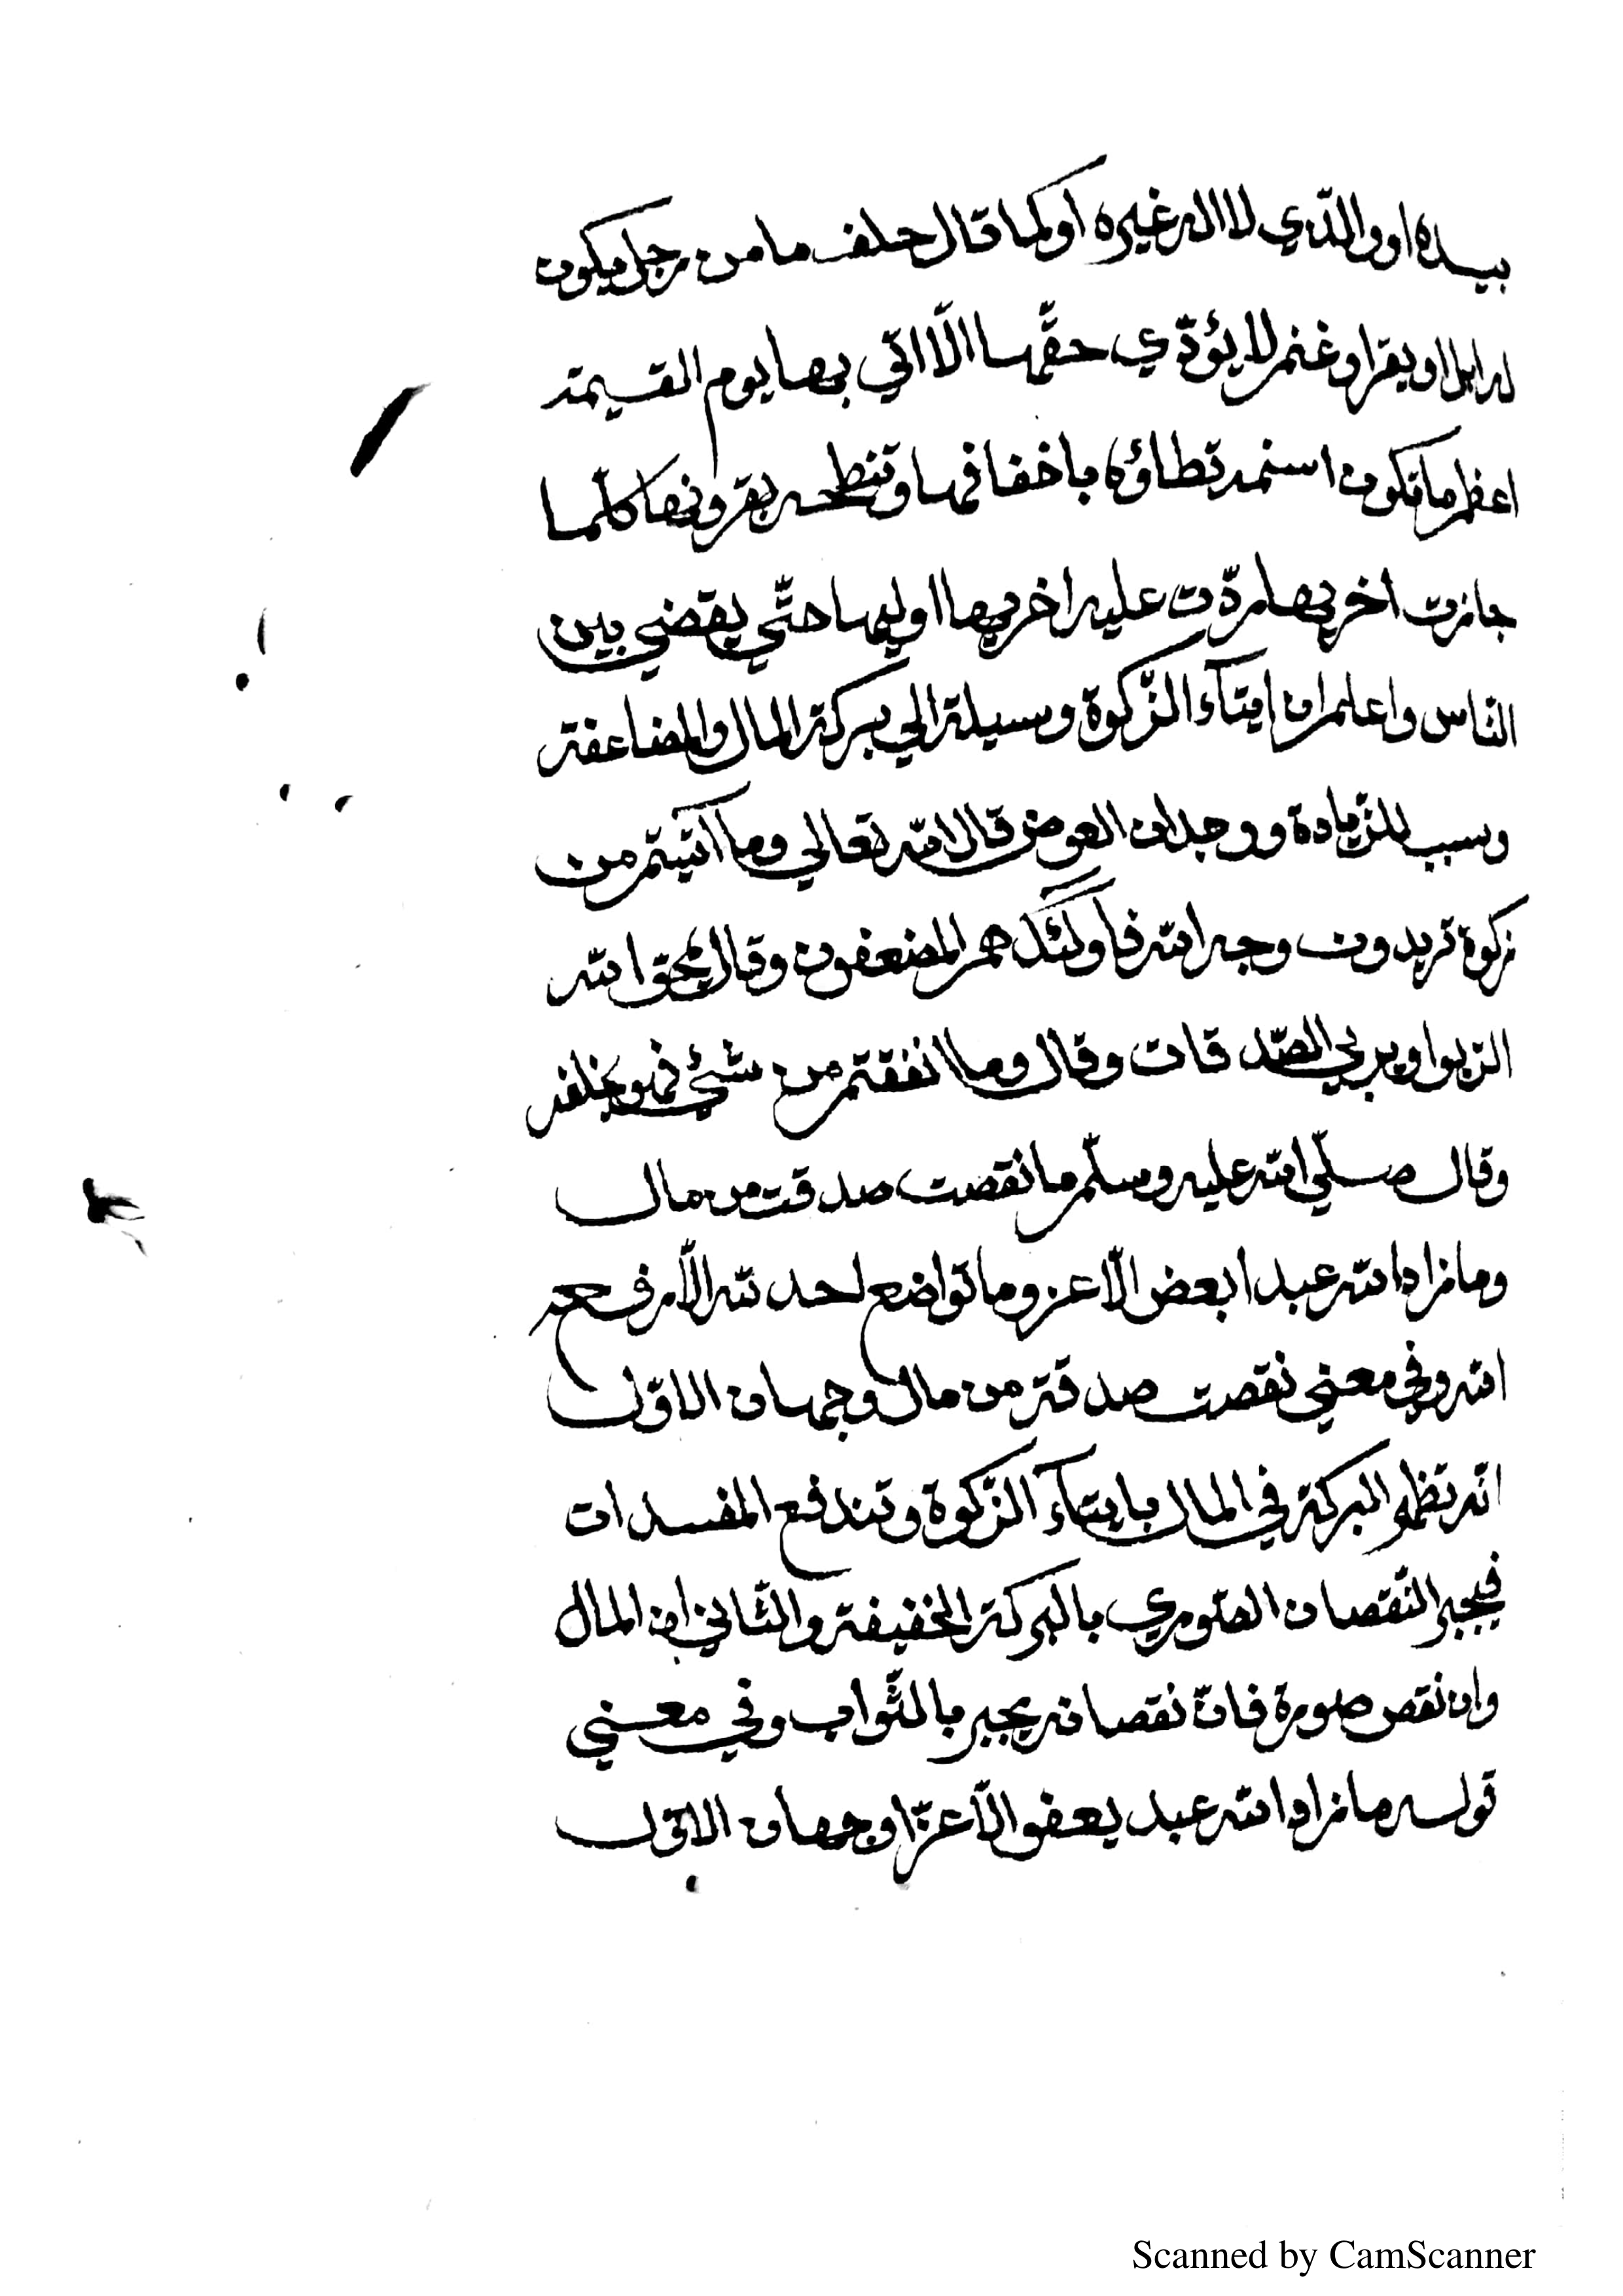 بيده او والّذي لا اله غيره او كما قال حلف ما من رجل يكون
له ابل او بقر او غنم لا يؤدّي حقّها الّا اتي بها يوم القيمة
اعظم ما تكون اسنمه تطاؤه باخفافها وتنطحه بقرونها كلّما
جازت اخريها ردّت عليه اخريها اوليها حتّي يقضي بين
النّاس واعلم ان ايتآء الزّكوة وسيلة الي بركة المال والمضاعفة
وسبب للزّيادة ووجدان العوض قال الله تعالي وما آتيتم من
زكوة تريدون وجه الله فاولئك هم المضعفون وقال يمحق الله
الرّبوا ويربي الصّدقات وقال وما انفقتم من شئ فهو يخلفه
وقال صلّي الله عليه وسلّم ما نقصت صدقت من مال
وما زاد الله عبدا بعض الّا عز وما تواضع احد لله الّا رفعه
الله وفي معني نقصت صدقة من مال وجهان الاوّل
انّه تظهر البركة في المال بايتآء الزّكوة وتندفع المفسدات
فيجبر النّقصان الصّوري بالبركة الخفيفة والثّاني ان المال
وان نقص صورة فانّ نقصانه يجبر بالثّواب وفي معني
قوله ما زاد الله عبد يعفو الّا عزّا وجهان الاوّل
Scanned by CamScanner